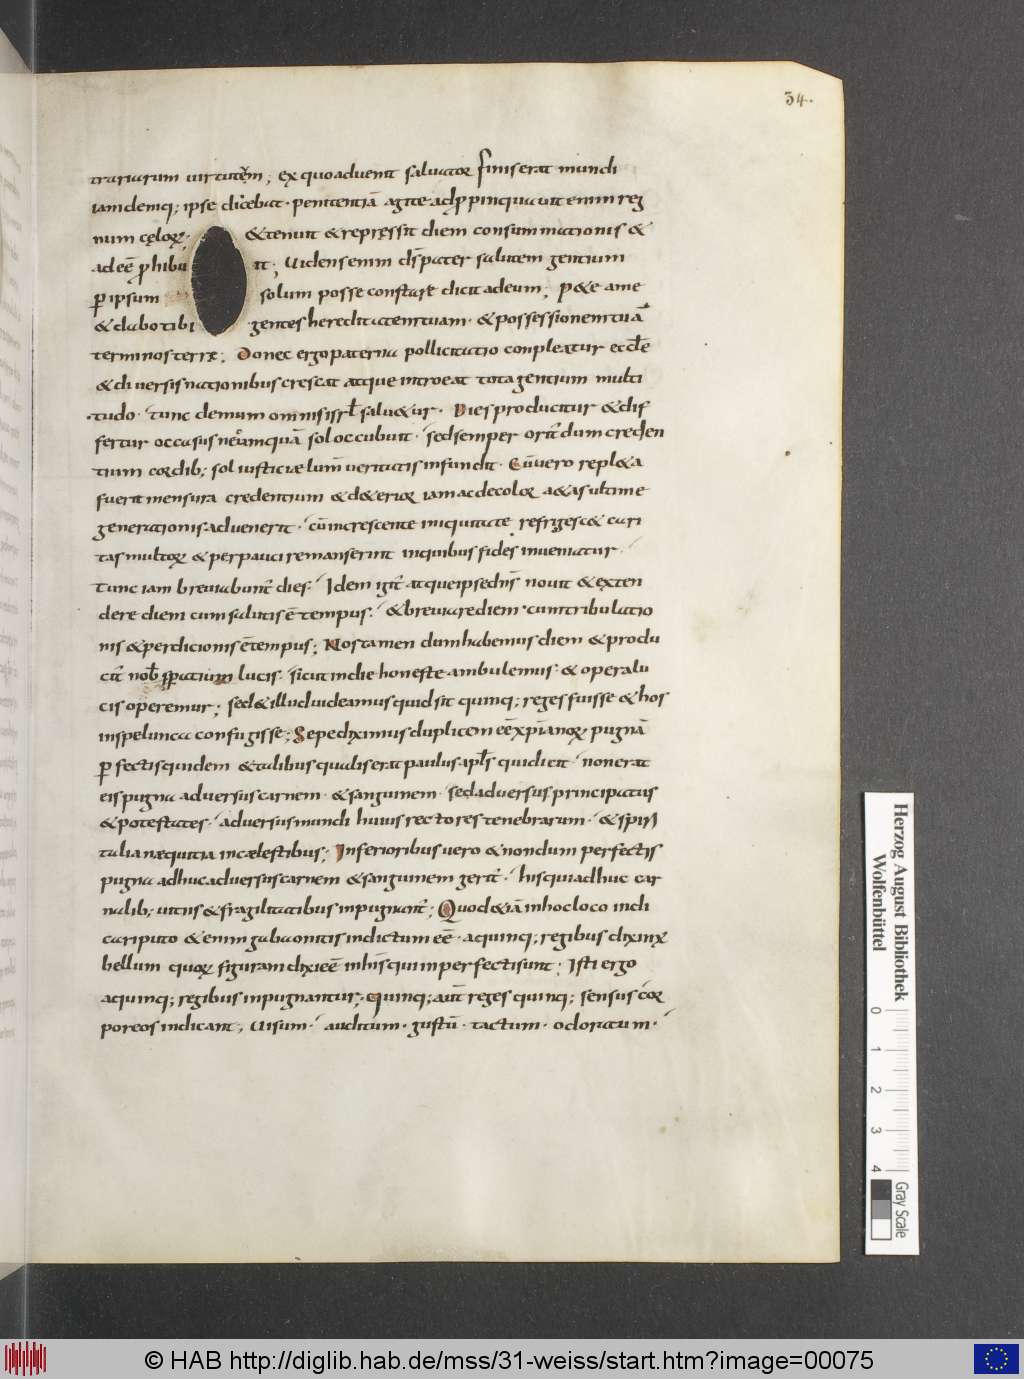 34.
trariarum uirtutẽm; ex quo aduenit saluator finis erat mundi
iam deniq; ipse dicebat · penitentiā agite adp̱pinquauit enim reg
num cęloꝝ · & tenuit & repressit diem consummationis &
adeē ꝓhibu it; Uidens enim ds̄ pater salutem gentium
ꝑ ipsum solum posse constare dicit ad eum; P&e a me
& dabo tibi gentes hereditatem tuam · & possessionem tuā
terminos terrę; Donec ergo paterna pollicitatio conpleatur et ecclē
& diuersis nationibus crescat atque introeat tota gentium multi
tudo · tunc demum omnis isrl̄ salu&ur · Dies producitur & dif
fertur occasus nec umquā sol occubuit · sed semper orit̃ dum creden
tium cordib; sol iusticiæ lum̄ ueritatis infundit · Cū uero repl&a
fuerit mensura credentium & d&erior iam ac decolor a&as ultime
generationis aduenerit · cū increscente iniquitate refrigesc& cari
tas multoꝝ & perpauci remanserint in quibus fides inueniatur ·
Tunc iam breuiabunt̃ dies · Idem igit̃ atque ipse dn̄s nouit & exten
dere diem cum salutis ē tempus · & breuiare diem cum tribulatio
nis & perdicionis ē tempus; Nos tamen dum habemus diem & produ
cit̃ nob̄ spatium lucis · sicut in die honeste ambulemus · & opera lu
cis operemur; sed & illud uideamus quid sit quinq; reges fuisse & hos
in spelunca confugisse; Sepe diximus duplicem eē xp̄ianoꝝ pugnā
ꝑfectis quidem & talibus qualis erat paulus apl̄s qui dicit · non erat
eis pugna aduersus carnem · & sanguinem · sed aduersus principatus
& potestates · aduersus mundi huius rectores tenebrarum · & spiri
talia næquitia in cælestibus; Inferioribus uero & nondum perfectis
pugna adhuc aduersus carnem & sanguinem gerit̃ · his qui adhuc car
nalib; uitiis & fragilitatibus inpugnant̃; Quod &iā in hoc loco indi
cari puto & enim gabaonitis indictum eē · a quinq; regibus diximꝰ
bellum quoꝝ figuram dixi eē in his qui inperfecti sunt · Isti ergo
a quinq; regibus inpugnantur; quinq; aut̄ reges quinq; sensus cor
poreos indicant; Uisum · auditum · gustū · tactum · odoratum ·
Herzog August Bibliothek
Wolfenbüttel
0 1 2 3 4
Gray Scale
© HAB http://diglib.hab.de/mss/31-weiss/start.htm?image=00075